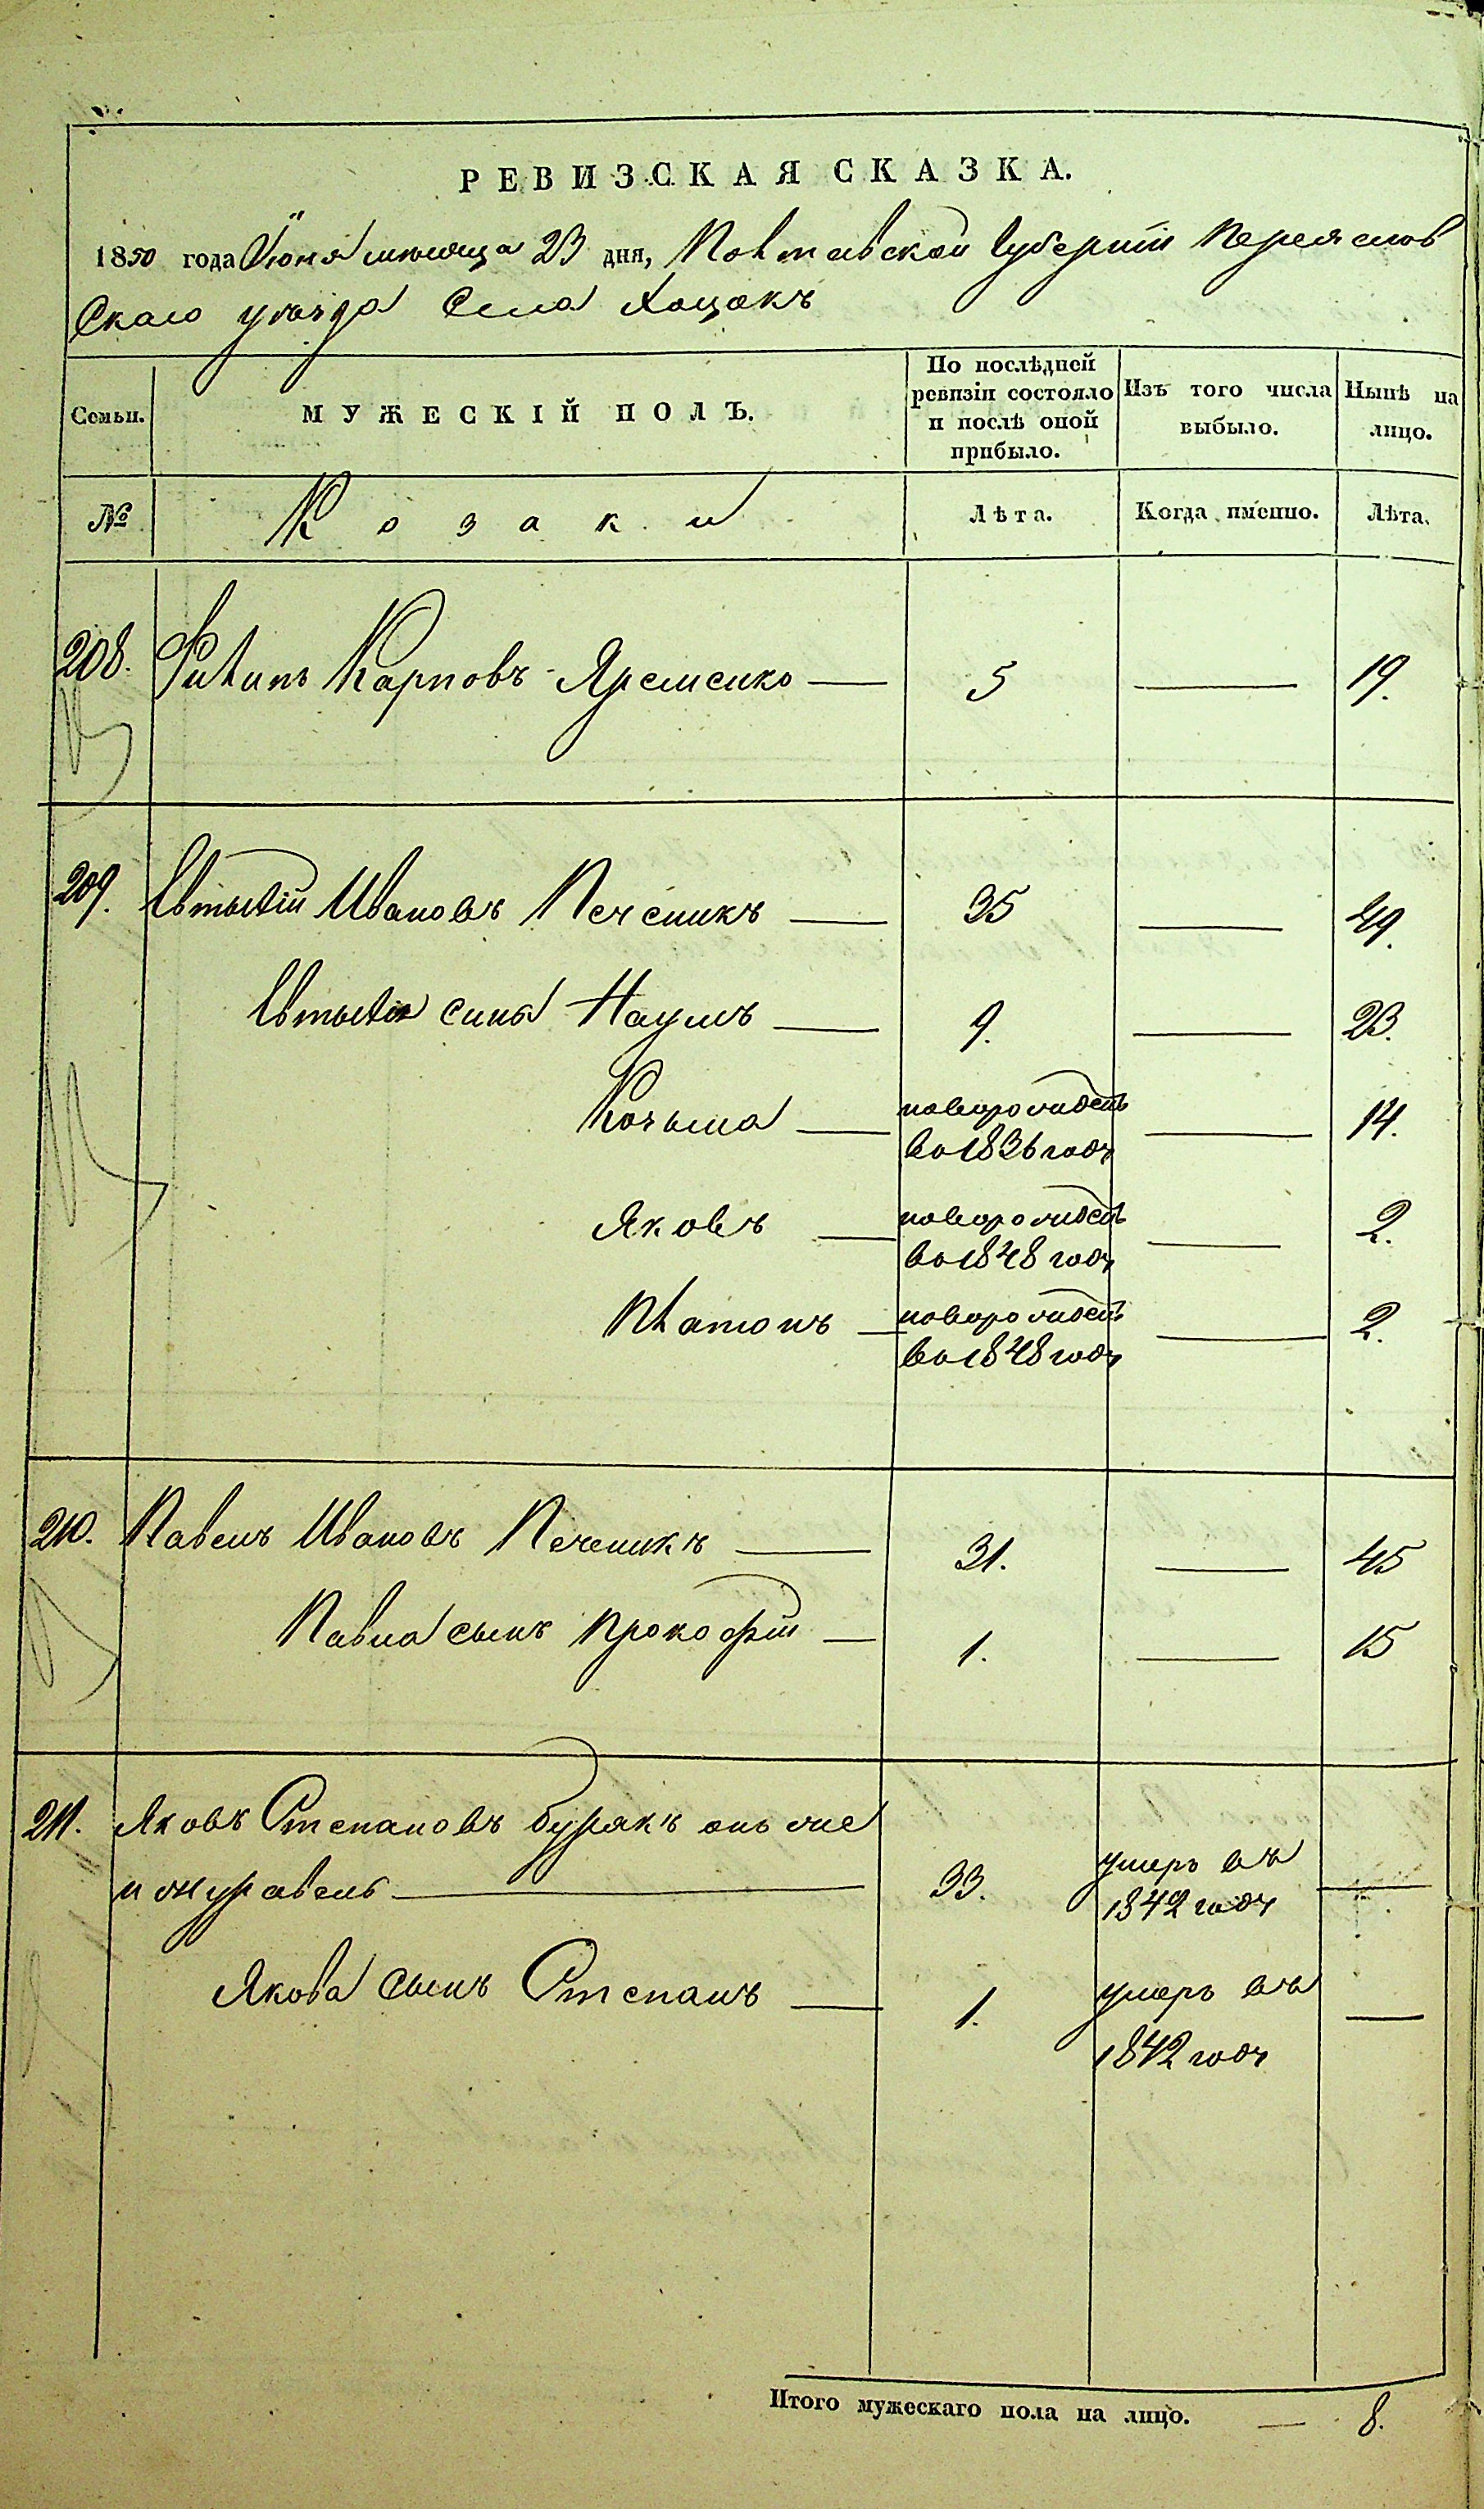 РЕВИЗСКАЯ СКАЗКА.
1850 года Іюня мѣсяца 23 дня, Полтавской Губерніи Переяслов
Скаго уѣзда Села Хоцокъ
Семьи.
МУЖЕСКІЙ ПОЛЪ.
По послѣдней
ревизіи состояло
и послѣ оной
прибыло.
Изъ того числа
выбыло.
Нынѣ на
лицо.
№
Козаки
Лѣта.
Когда именно.
Лѣта.
208. Филипъ Карповъ Яременко — 5 — 19.
209. Евтихій Ивановъ Печеникъ — 35 — 49.
Евтихія сина Наумъ — 9. — 23.
Козьма — новорожденъ — 14.
во 1836 году
Яковъ — новорожденъ — 2.
во 1848 году
Платонъ — новорожденъ — 2.
во 1848 году
210. Павелъ Ивановъ Печеникъ — 31. — 45
Павла сынъ Прокофій — 1. — 15
211. Яковъ Степановъ Бурякъ онъ же
и Журавель — 33. умеръ въ —
1842 году
Якова сынъ Степанъ — 1. умеръ въ —
1842 году
Итого мужескаго пола на лицо. — 8.